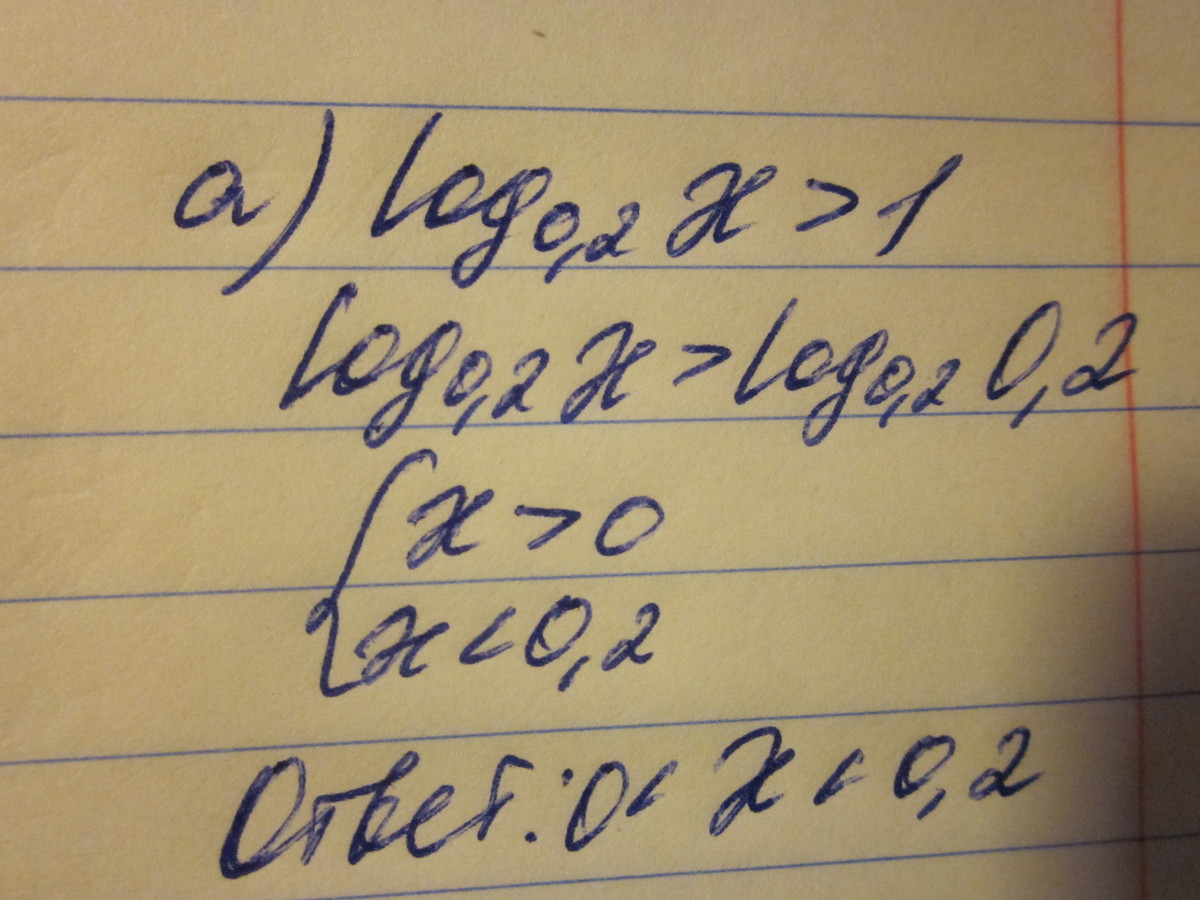 а) log₀,₂ x > 1
log₀,₂ x > log₀,₂ 0,2
{ x > 0
x < 0,2
Ответ: 0 < x < 0,2